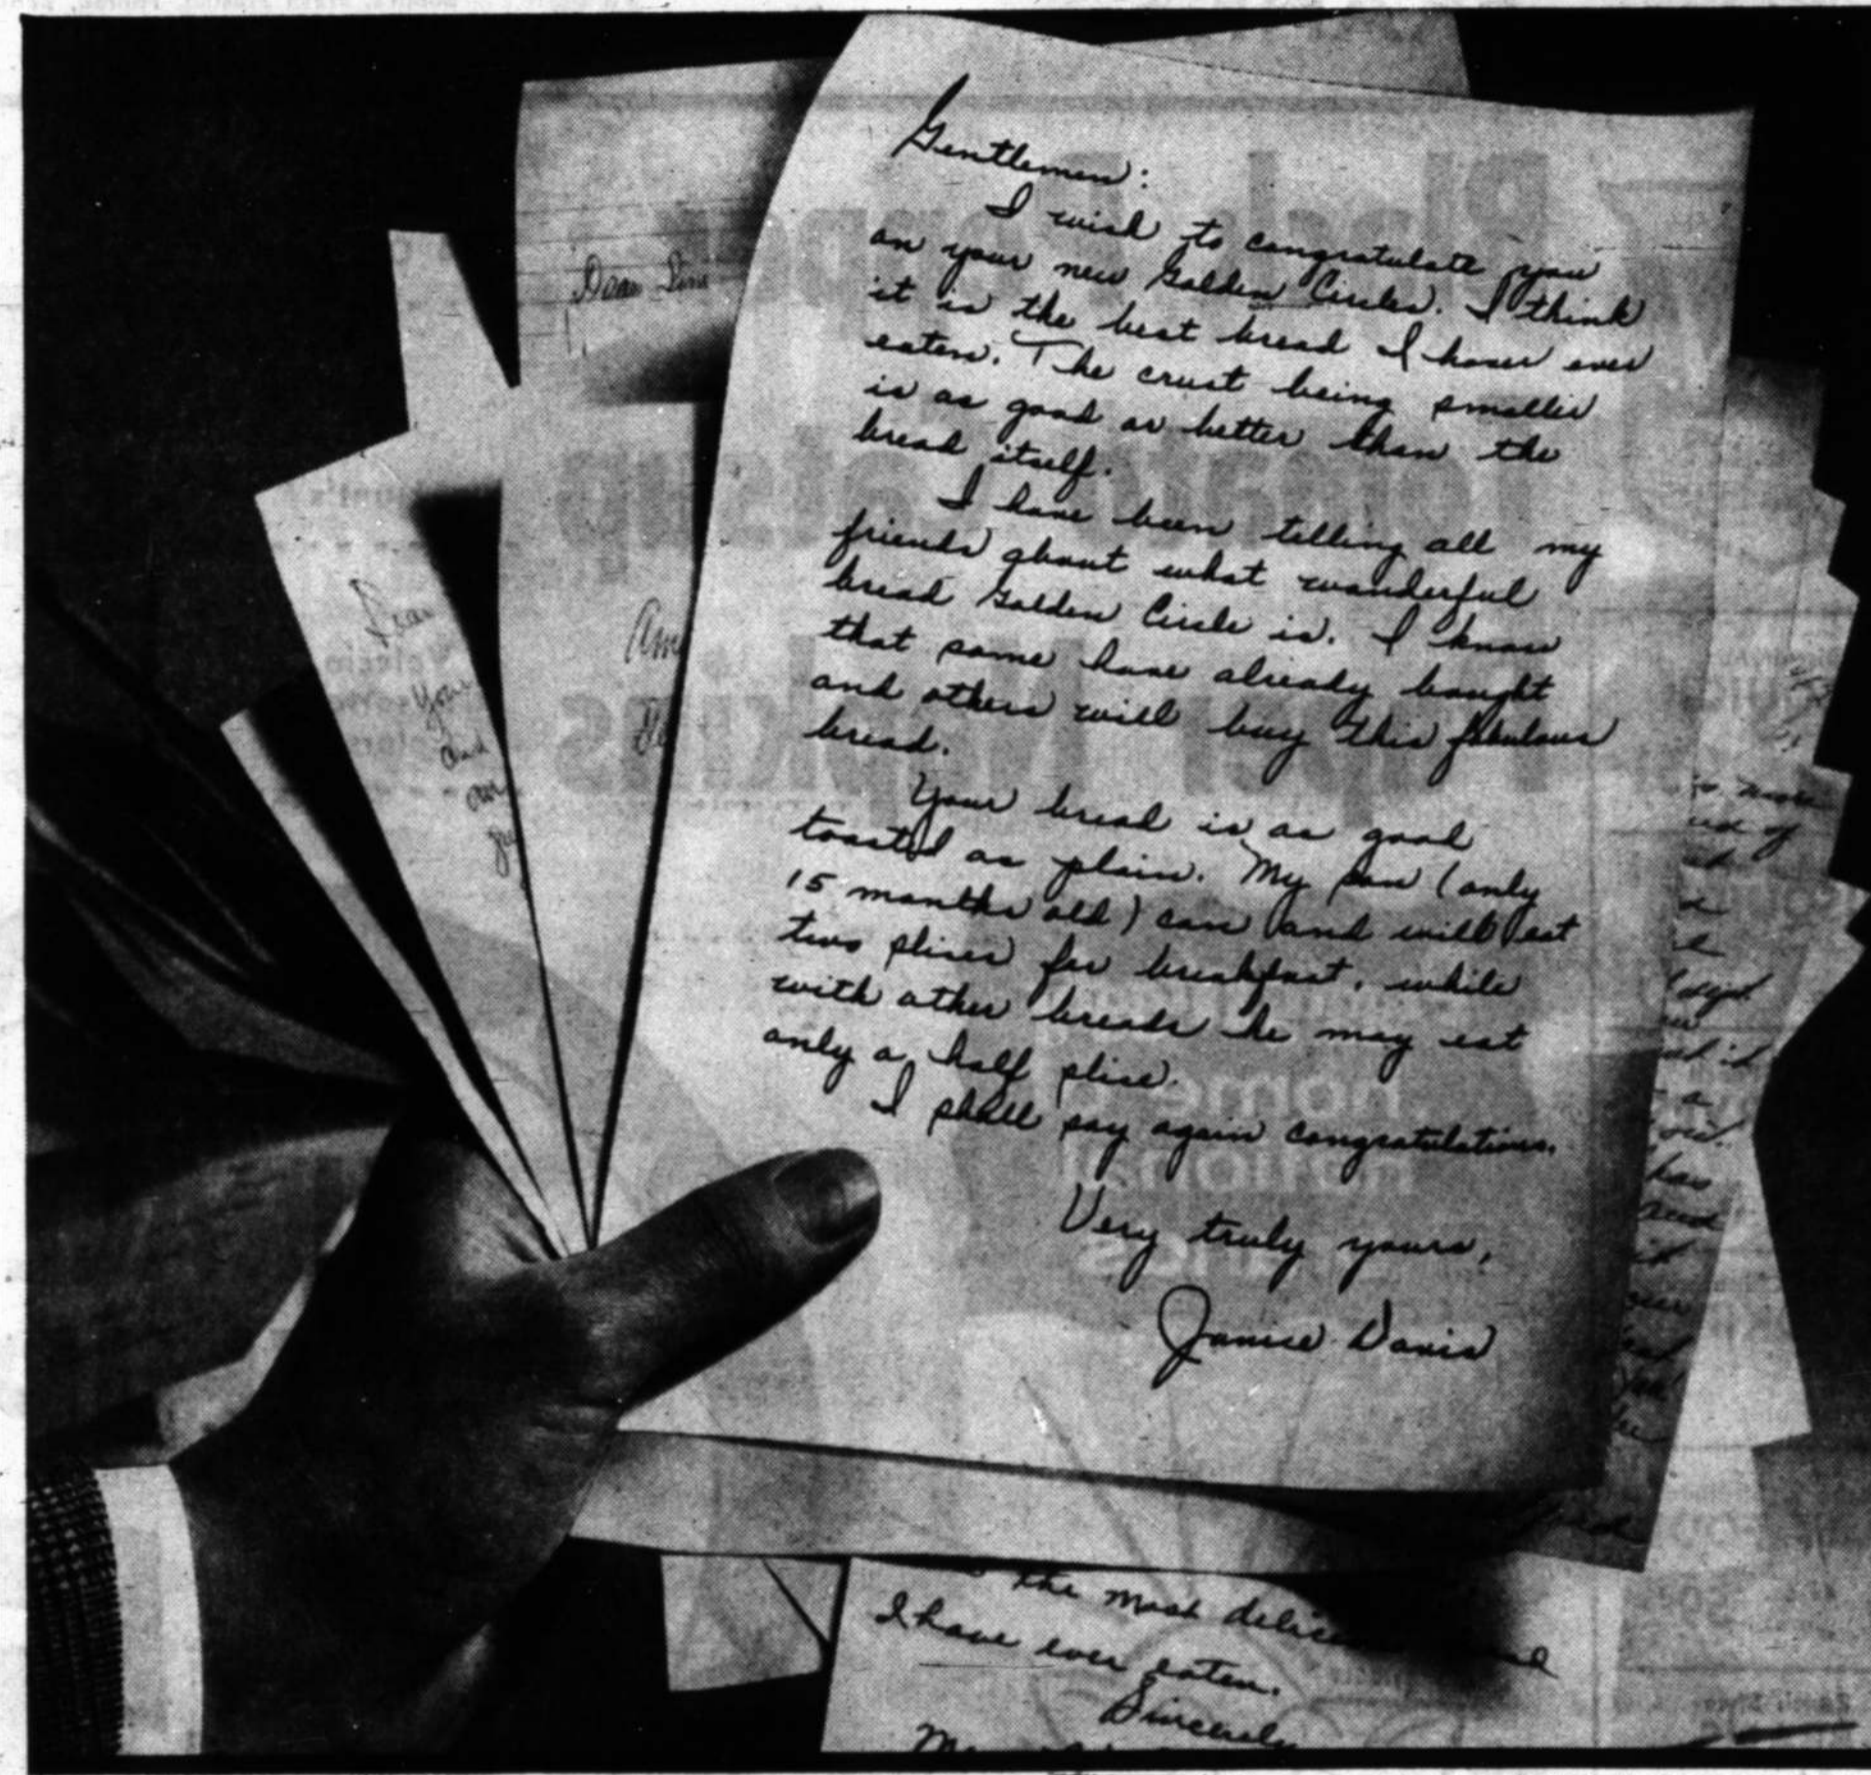 Gentlemen:
I wish to congratulate you
on your new Golden Circle. I think
it is the best bread I have ever
eaten. The crust being smaller
is as good or better than the
bread itself.
I have been telling all my
friends about what wonderful
bread Golden Circle is. I know
that some have already bought
and others will buy this fabulous
bread.
Your bread is as good
toasted as plain. My son (only
15 months old) can and will eat
two slices for breakfast, while
with other breads he may eat
only a half slice.
I shall say again congratulations.
Very truly yours,
Janice Davis
Dear Sirs
Dear
Your
and
the most
I have ever eaten.
Sincerely